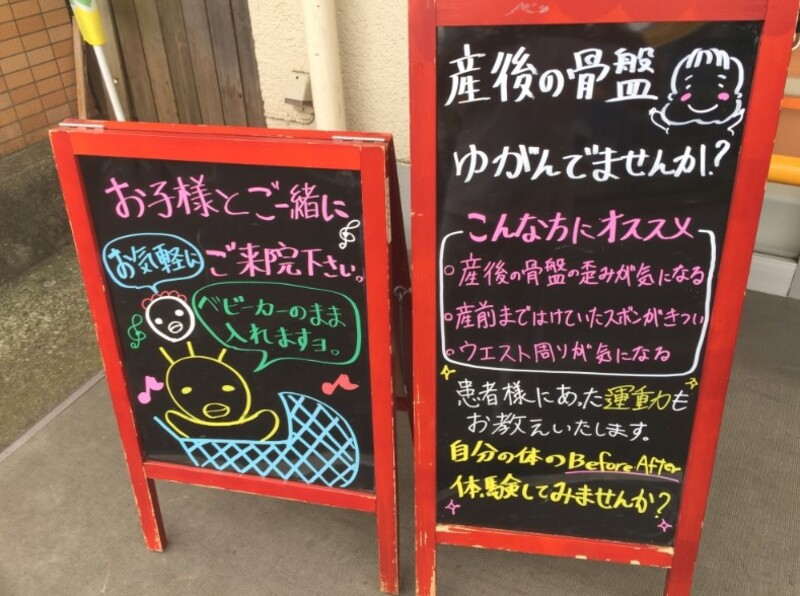 お子様とご一緒に
お気軽に
ご来院下さい。
ベビーカーのまま
入れますヨ。
産後の骨盤
ゆがんでませんか!?
こんな方にオススメ
・産後の骨盤の歪みが気になる
・産前まではけていたズボンがきつい
・ウエスト周りが気になる
患者様にあった運動力も
お教えいたします。
自分の体のBefore After
体験してみませんか?